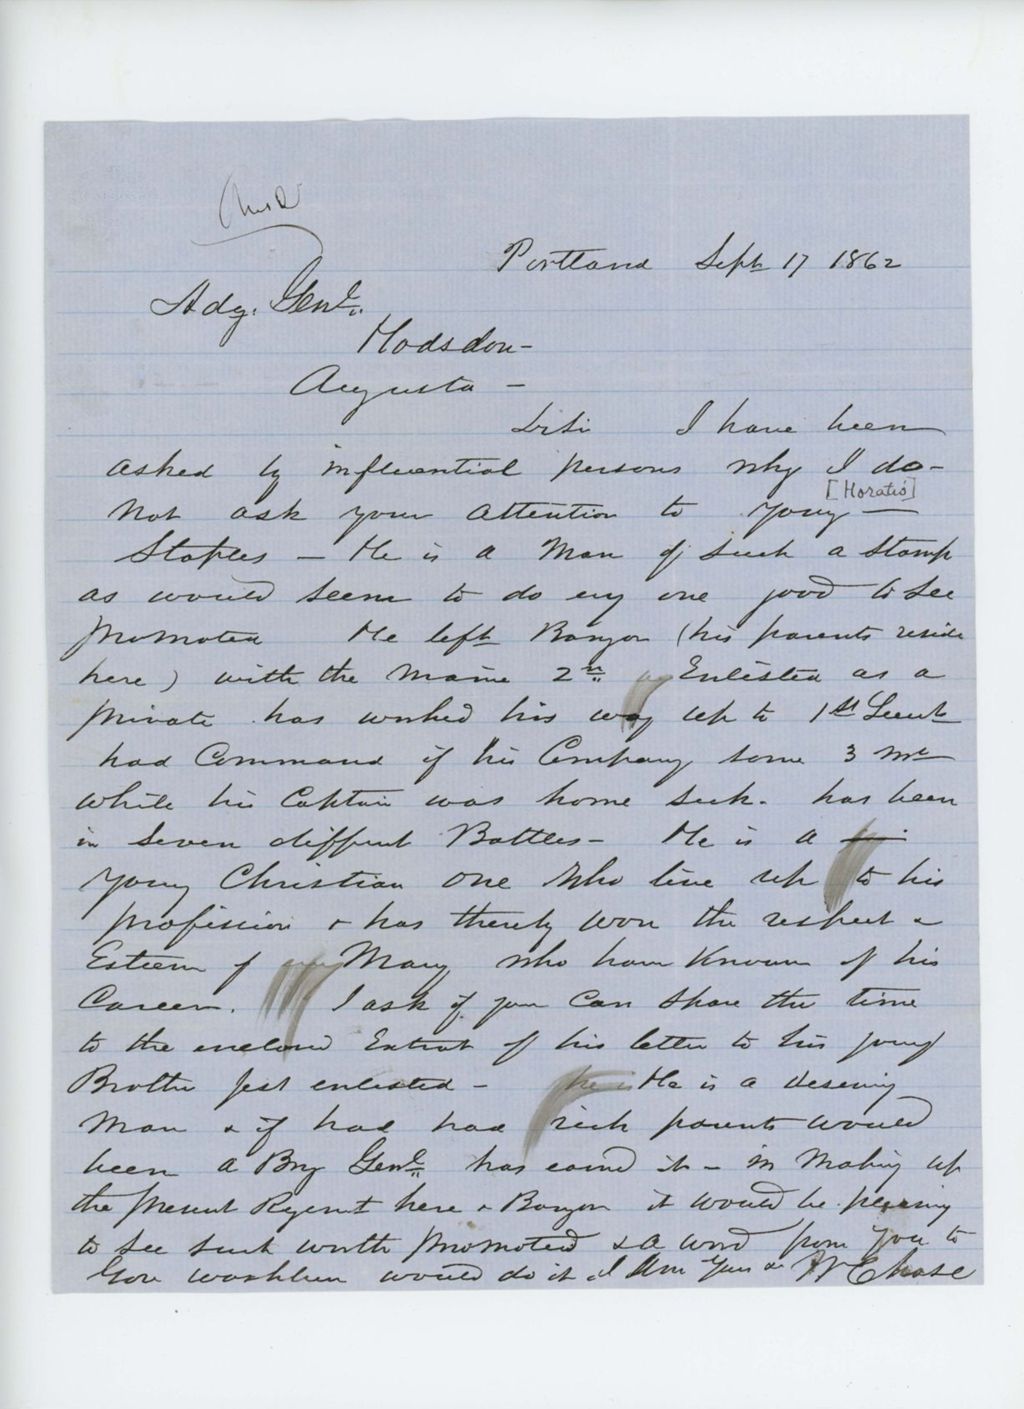 Portland Sept 17 1862
Adg. Genl.
Hodsdon -
Augusta -
Dr Sir I have been
asked by influential persons why I do -
[Horatio]
not ask your attention to young -
Staples - He is a man of such a stamp
as would seem to do any one good to see
promoted He left Bangor (his parents reside
here) with the Maine 2n. Enlisted as a
private has worked his way up to 1st Lieut
had Command of his Company some 3 mo
while his Captain was home sick. has been
in seven different Battles - He is a
young Christian one who live up to his
profession & has thereby won the respect &
Esteem of Many who have known of his
Career. I ask if you can spare the time
to the enclosed Extract of his letter to his young
Brother just enlisted - He is a deserving
man & if had had rich parents would
been a Brg Genl. has earned it - in making up
the present Regemt here & Bangor it would be pleasing
to see such worth promoted & a word from you to
Gov Washburn would do it I am Yours &c Chase